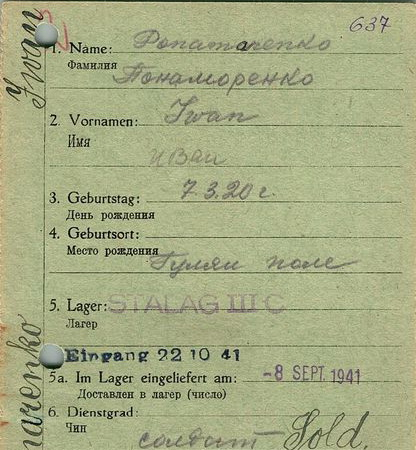 637
1. Name: Ponamarenko
Фамилия Понаморенко
2. Vornamen: Iwan
Имя Иван
3. Geburtstag: 7.3.20 г.
День рождения
4. Geburtsort:
Место рождения Гуляй поле
5. Lager: STALAG III C
Лагер
Eingang 22 10 41
5a. Im Lager eingeliefert am: -8 SEPT. 1941
Доставлен в лагер (число)
6. Dienstgrad:
Чин солдат Sold.
Iwan